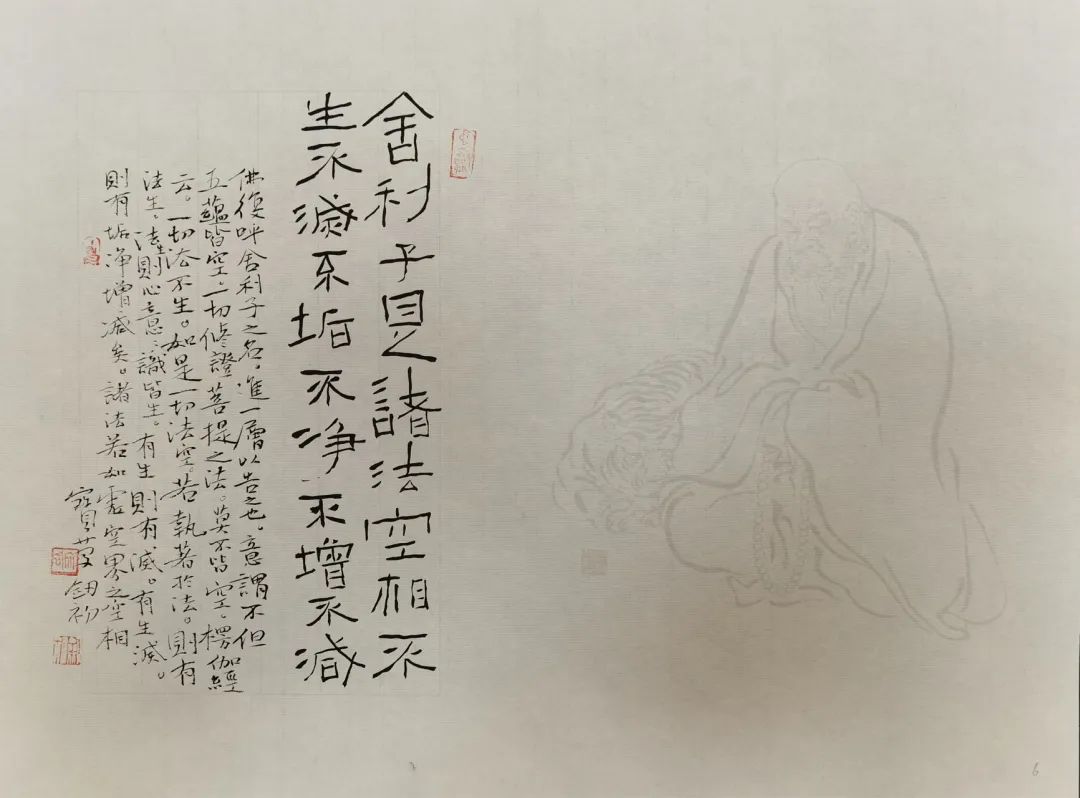 舍利子見諸法空相不
生不滅不垢不净不增不減
佛復呼舍利子之名。進一層以告之也。意謂不但
五蘊皆空。一切修證菩提之法。莫不皆空。楞伽經
云。一切法不生。如是一切法空。若執著於法。則有
法生。法生則心意識皆生。有生則有滅。有生滅。
則有垢净增減矣。諸法若如虛空界之空相
寶
鈕初
6